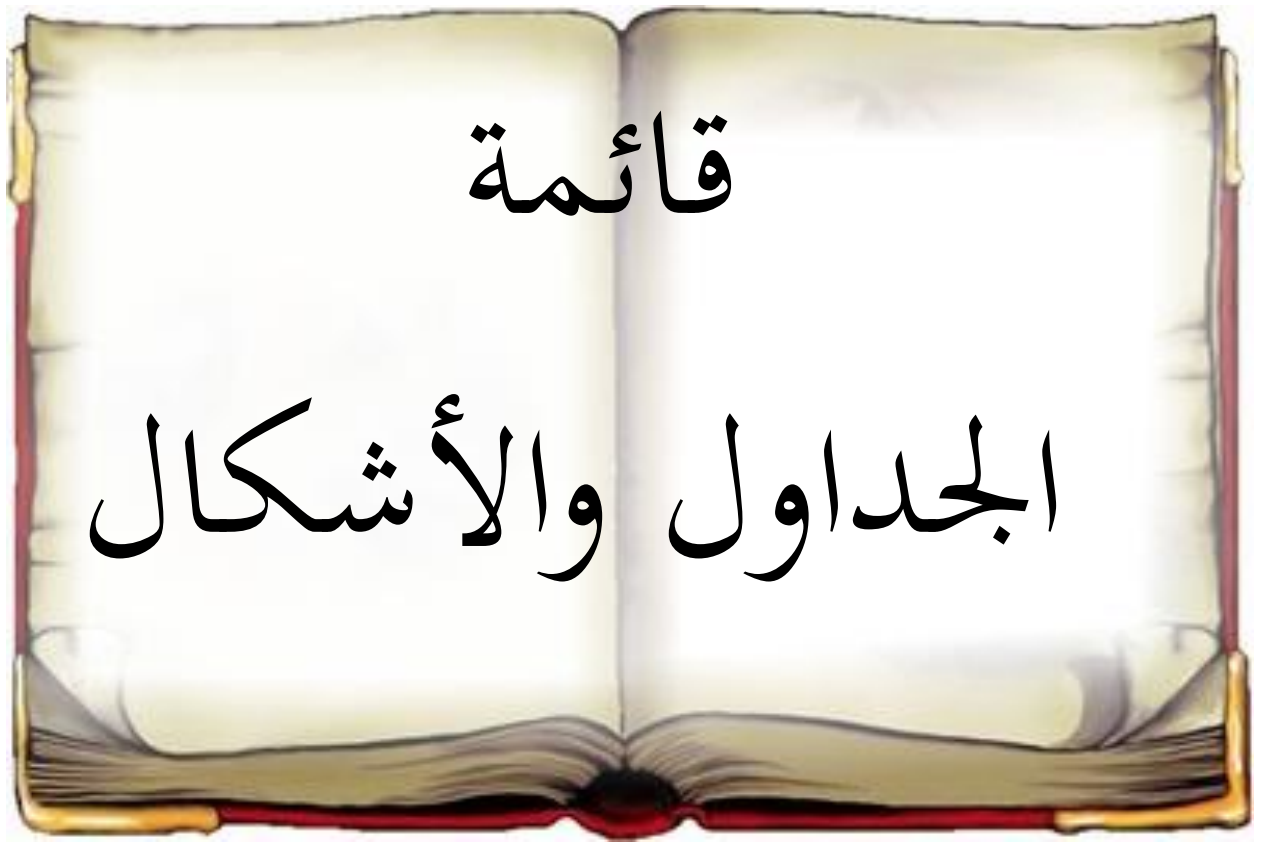 قائمة
الجداول والأشكال